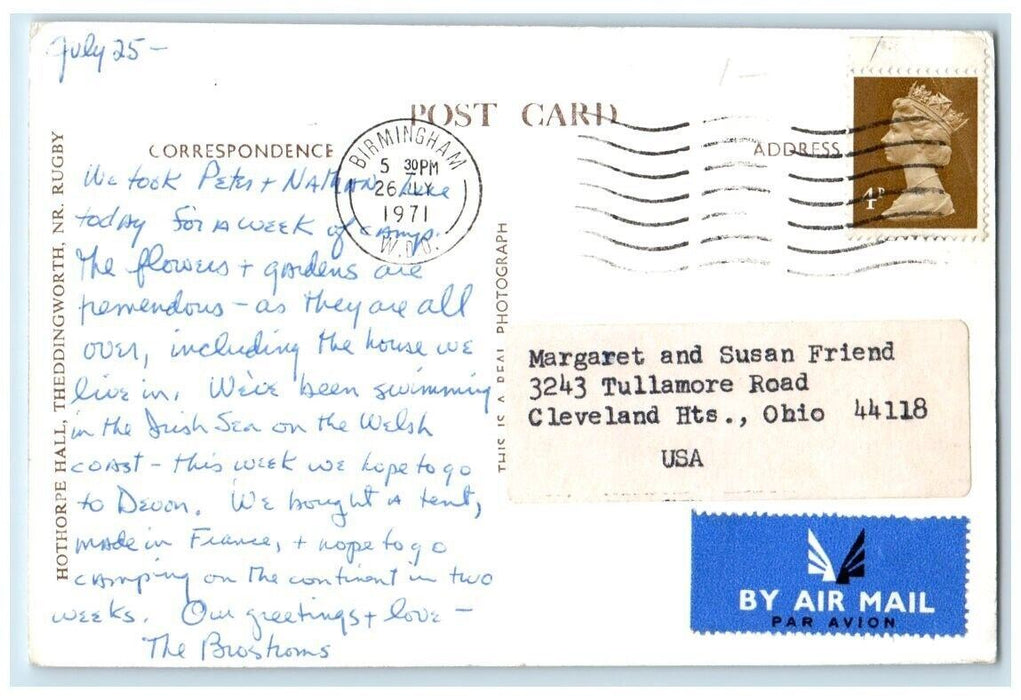 July 25-
POST CARD
CORRESPONDENCE
ADDRESS
BIRMINGHAM
5 30PM
26 JLY
1971
4P
We took Peter + Nathan here
today for a week of camp.
The flowers + gardens are
tremendous - as they are all
over, including the house we
live in. We've been swimming
in the Irish Sea on the Welsh
coast - this week we hope to go
to Devon. We bought a tent,
made in France, + hope to go
camping on the continent in two
weeks. Our greetings + love -
The Brostroms
HOTHORPE HALL, THEDDINGWORTH, NR. RUGBY
THIS IS A REAL PHOTOGRAPH
Margaret and Susan Friend
3243 Tullamore Road
Cleveland Hts., Ohio 44118
USA
BY AIR MAIL
PAR AVION